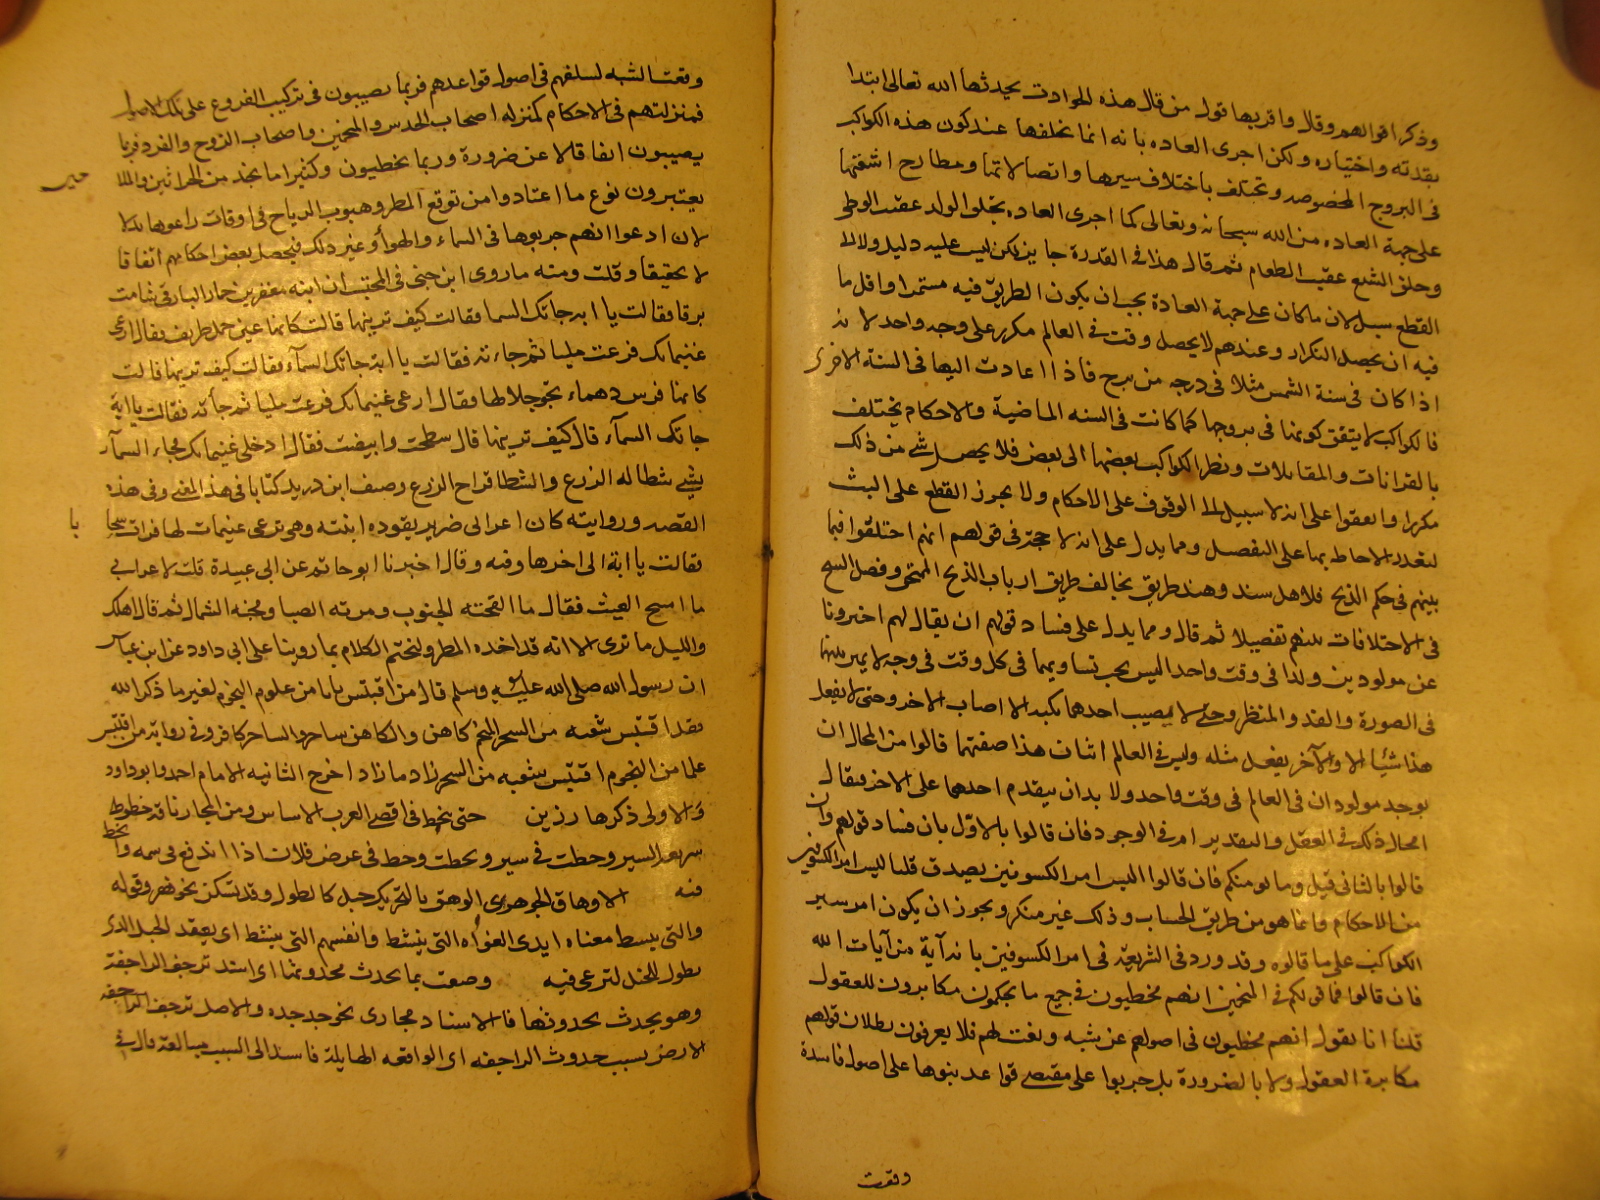 وذكر اقوالهم وقال واقربها قول من قال هذه الحوادث يحدثها الله تعالى ابتدا
بقدرته واختياره ولكن اجرى العاده بانه انما يخلقها عند كون هذه الكواكب
فى البروج المخصوصه وتختلف باختلاف سيرها واتصالاتها ومطارح اشعتها
على جهة العاده من الله سبحانه وتعالى كما اجرى العاده بخلق الولد عقيب الوطى
وخلق الشبع عقيب الطعام ثم قال هذا فى القدرة جايز لكن ليس عليه دليل ولا الى
القطع سبيل لان ما كان على جهة العادة يجب ان يكون الطريق فيه مستمرا واقل ما
فيه ان يحصل التكرار وعندهم لا يحصل وقت فى العالم مكرر على وجه واحد لانه
اذا كان فى سنة الشمس مثلا فى درجه من برج فاذا اعادت اليها فى السنة الاخرى
فالكواكب لا يتفق كونها فى بروجها كما كانت فى السنه الماضية والاحكام يختلف
بالقرانات والمقابلات ونظر الكواكب بعضها الى بعض فلا يحصل شى من ذلك
مكررا واتفقوا على انه لا سبيل الى الوقوف على الاحكام ولا يجوز القطع على البت
لتعذر الاحاطه بها على التفصيل ومما يدل على انه لا حجة فى قولهم انهم اختلفوا فيما
بينهم فى حكم الذيح فلاهل سند وهند طريق يخالف طريق ارباب الذيح الممتحن وفصل الشيخ
فى الاختلافات بينهم تفصيلا ثم قال ومما يدل على فساد قولهم ان يقال لهم اخبرونا
عن مولودين ولدا فى وقت واحد اليس يجب تساويهما فى كل وقت فى وجه لا يميز بينهما
فى الصورة والقد والمنظر وحتى لا يصيب احدهما نكبه الا اصاب الاخر وحتى لا يفعل
هذا شيئا الا والآخر يفعل مثله وليس فى العالم اثنان هذا صفتهما قالوا من المحال ان
يوجد مولودان فى العالم فى وقت واحد ولا بد ان يتقدم احدهما على الاخر فيقال
امحال ذلك فى العقل والتقدير ام فى الوجود فان قالوا بالاول بان فساد قولهم وان
قالوا بالثانى قيل وما يومنكم فان قالوا اليس امر الكسوفين يصدق قلنا ليس امر الكسوفين
من الاحكام وانما هو من طريق الحساب وذلك غير منكر ويجوز ان يكون امر سير
الكواكب على ما قالوه وقد ورد فى الشريعة فى امر الكسوفين بانه آية من آيات الله
فان قالوا فما قولكم فى المنجمين انهم مخطيون فى جميع ما يحكمون مكابرون للعقول
قلنا انا نقول انهم مخطيون فى اصولهم عن شبه وقعت لهم فلا يعرفون بطلان قولهم
مكابرة العقول ولا بالضرورة بل جربوا على مقتضى قواعد بنوها على اصول فاسدة
وقعت
وقعت الشبه لسلفهم فى اصول قواعدهم فربما يصيبون فى تركيب الفروع على تلك الاصول
فمنزلتهم فى الاحكام كمنزله اصحاب الحدس والمخمنين واصحاب الزوج والفرد فربما
يصيبون اتفاقا لا عن ضرورة وربما يخطيون وكثيرا ما نجد من
يعتبرون نوع ما اعتادوا من توقع المطر وهبوب الرياح فى اوقات راعوها
لان ادعوا انهم جربوها فى السماء والهوا وغير ذلك فيحصل بعض احكامهم اتفاقا
لا تحقيقا وقلت ومنه ما روى ابن جنى فى ان ابنه معقر بن حمار البارقى شامت
برقا فقالت يا ابه جاتك السما فقالت كيف ترينها قالت كانها عين جمل طريف فقال ارعى
غنيماتك فرعت مليا ثم جاءته فقالت يا ابة جاتك السماء فقالت كيف ترينها قالت
كانها فرس دهماء تجر جلالها فقال ارعى غنيماتك فرعت مليا ثم جاته فقالت يا ابة
جاتك السماء قال كيف ترينها قال سطحت وابيضت فقال ادخلى غنيماتك فجاء السماء
بشى شطا له الزرع والشطا فراخ الزرع وصنف ابن دريد كتابا فى هذا المعنى وفى هذه
القصه وروايته كان اعرابى ضرير يقوده ابنته وهى ترعى غنيمات لها فرات سحا
با
فقالت يا ابة الى اخرها وفيه وقال اخبرنا ابو حاتم عن ابى عبيدة قلت لاعرابى
ما اسح الغيث فقال ما القحته الجنوب ومرته الصبا ونتجته الشمال ثم قال اهلك
والليل ما ترى الا انه قد اخذه المطر ولنختم الكلام بما روينا على ابى داود عن ابن عباس
ان رسول الله صلى الله عليه وسلم قال من اقتبس بابا من علوم النجوم لغير ما ذكر الله
فقد اقتبس شعبه من السحر المنجم كاهن والكاهن ساحر والساحر كافر وفى رواية من اقتبس
علما من النجوم اقتبس شعبه من السحر زاد ما زاد اخرج الثانيه الامام احمد وابو داود
والاولى ذكرها رزين حتى يخط فى اقصى العرب الاساس ومن المجاز ناقة حطوط
سريعة السير وحطت فى سير وانحطت وحط فى عرض فلان اذا اندفع فى سمه وانحط
فيه الاوهاق الجوهرى الوهق بالتحريك حبل كالطول وقد تسكن نحو نهر وقوله
والتى يبسط معناه ايدى الغزاه التى ينشط وانفسهم التى ينشط اى يعقد الحبل الذى
يطول للخيل لترعى فيه وصعت بما يحدث محدوثها اى اسند ترجف الراجفة
وهو يحدث بحدوثها فالاسناد مجازى نحو جد جده والاصل ترجف الراجفه
الارض بسبب حدوث الراجفه اى الواقعه الهايلة فاسند الى السبب مبالغة قال فى